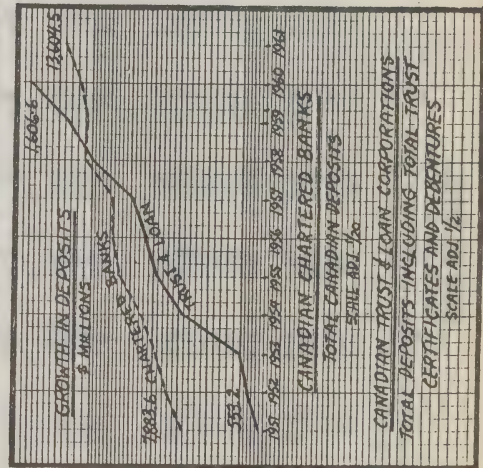 GROWTH IN DEPOSITS
$ MILLIONS
1,606.6
13,604.5
7,883.6 CHARTERED BANKS
TRUST & LOAN
553.2
1951 1952 1953 1954 1955 1956 1957 1958 1959 1960 1961
CANADIAN CHARTERED BANKS
TOTAL CANADIAN DEPOSITS
SCALE ADJ 1/20
CANADIAN TRUST & LOAN CORPORATIONS
TOTAL DEPOSITS INCLUDING TOTAL TRUST
CERTIFICATES AND DEBENTURES
SCALE ADJ 1/2